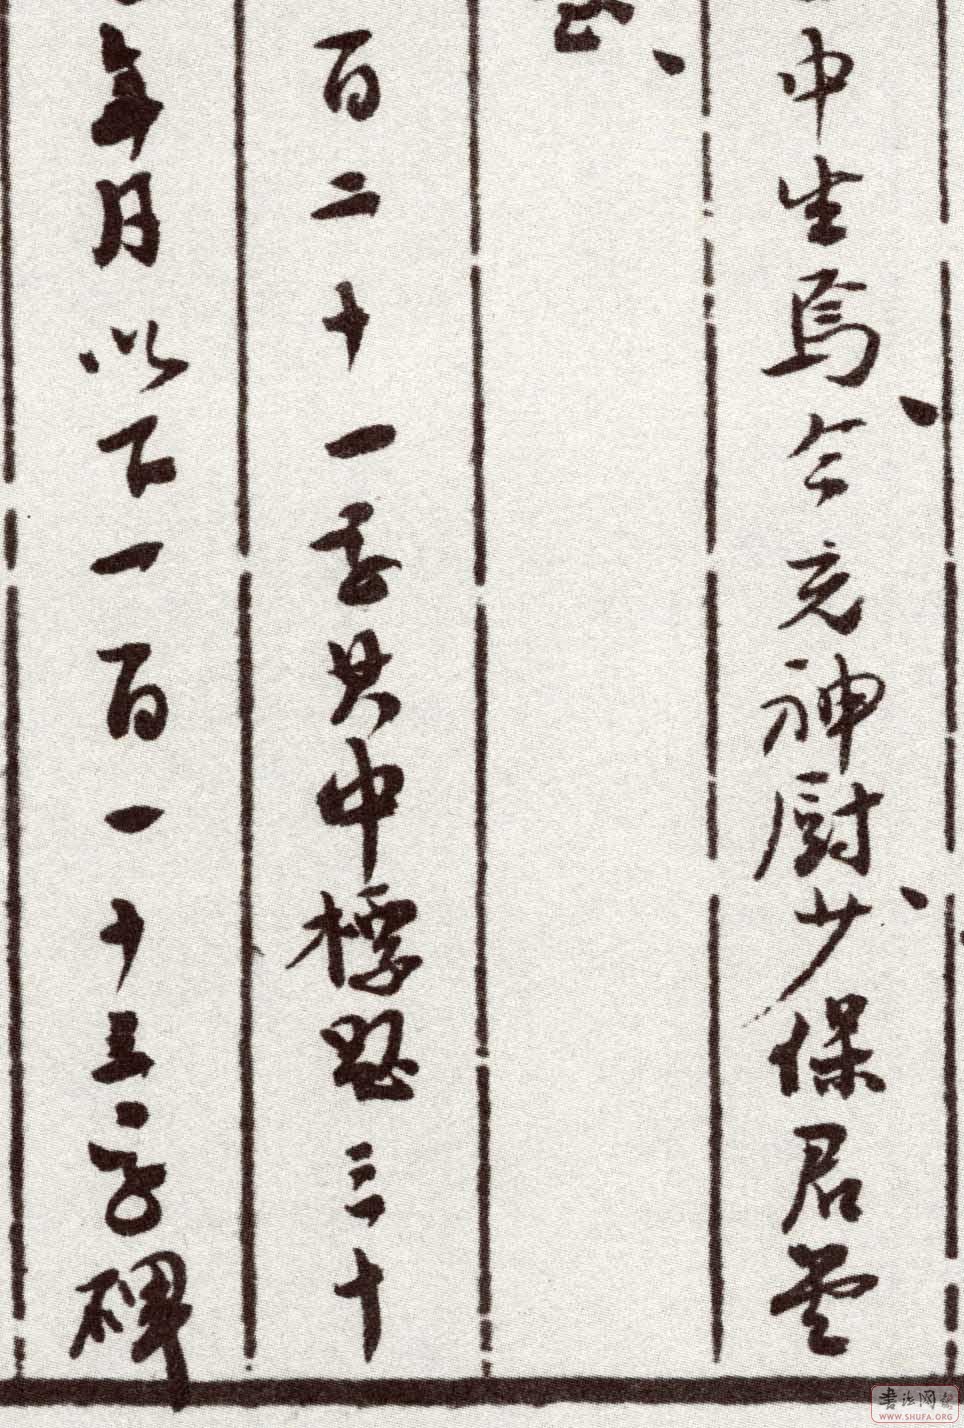 中生焉今充神厨少保君
百二十一字其中標題三十
年月以下一百一十五字碑
書法网
WWW.SHUFA.ORG